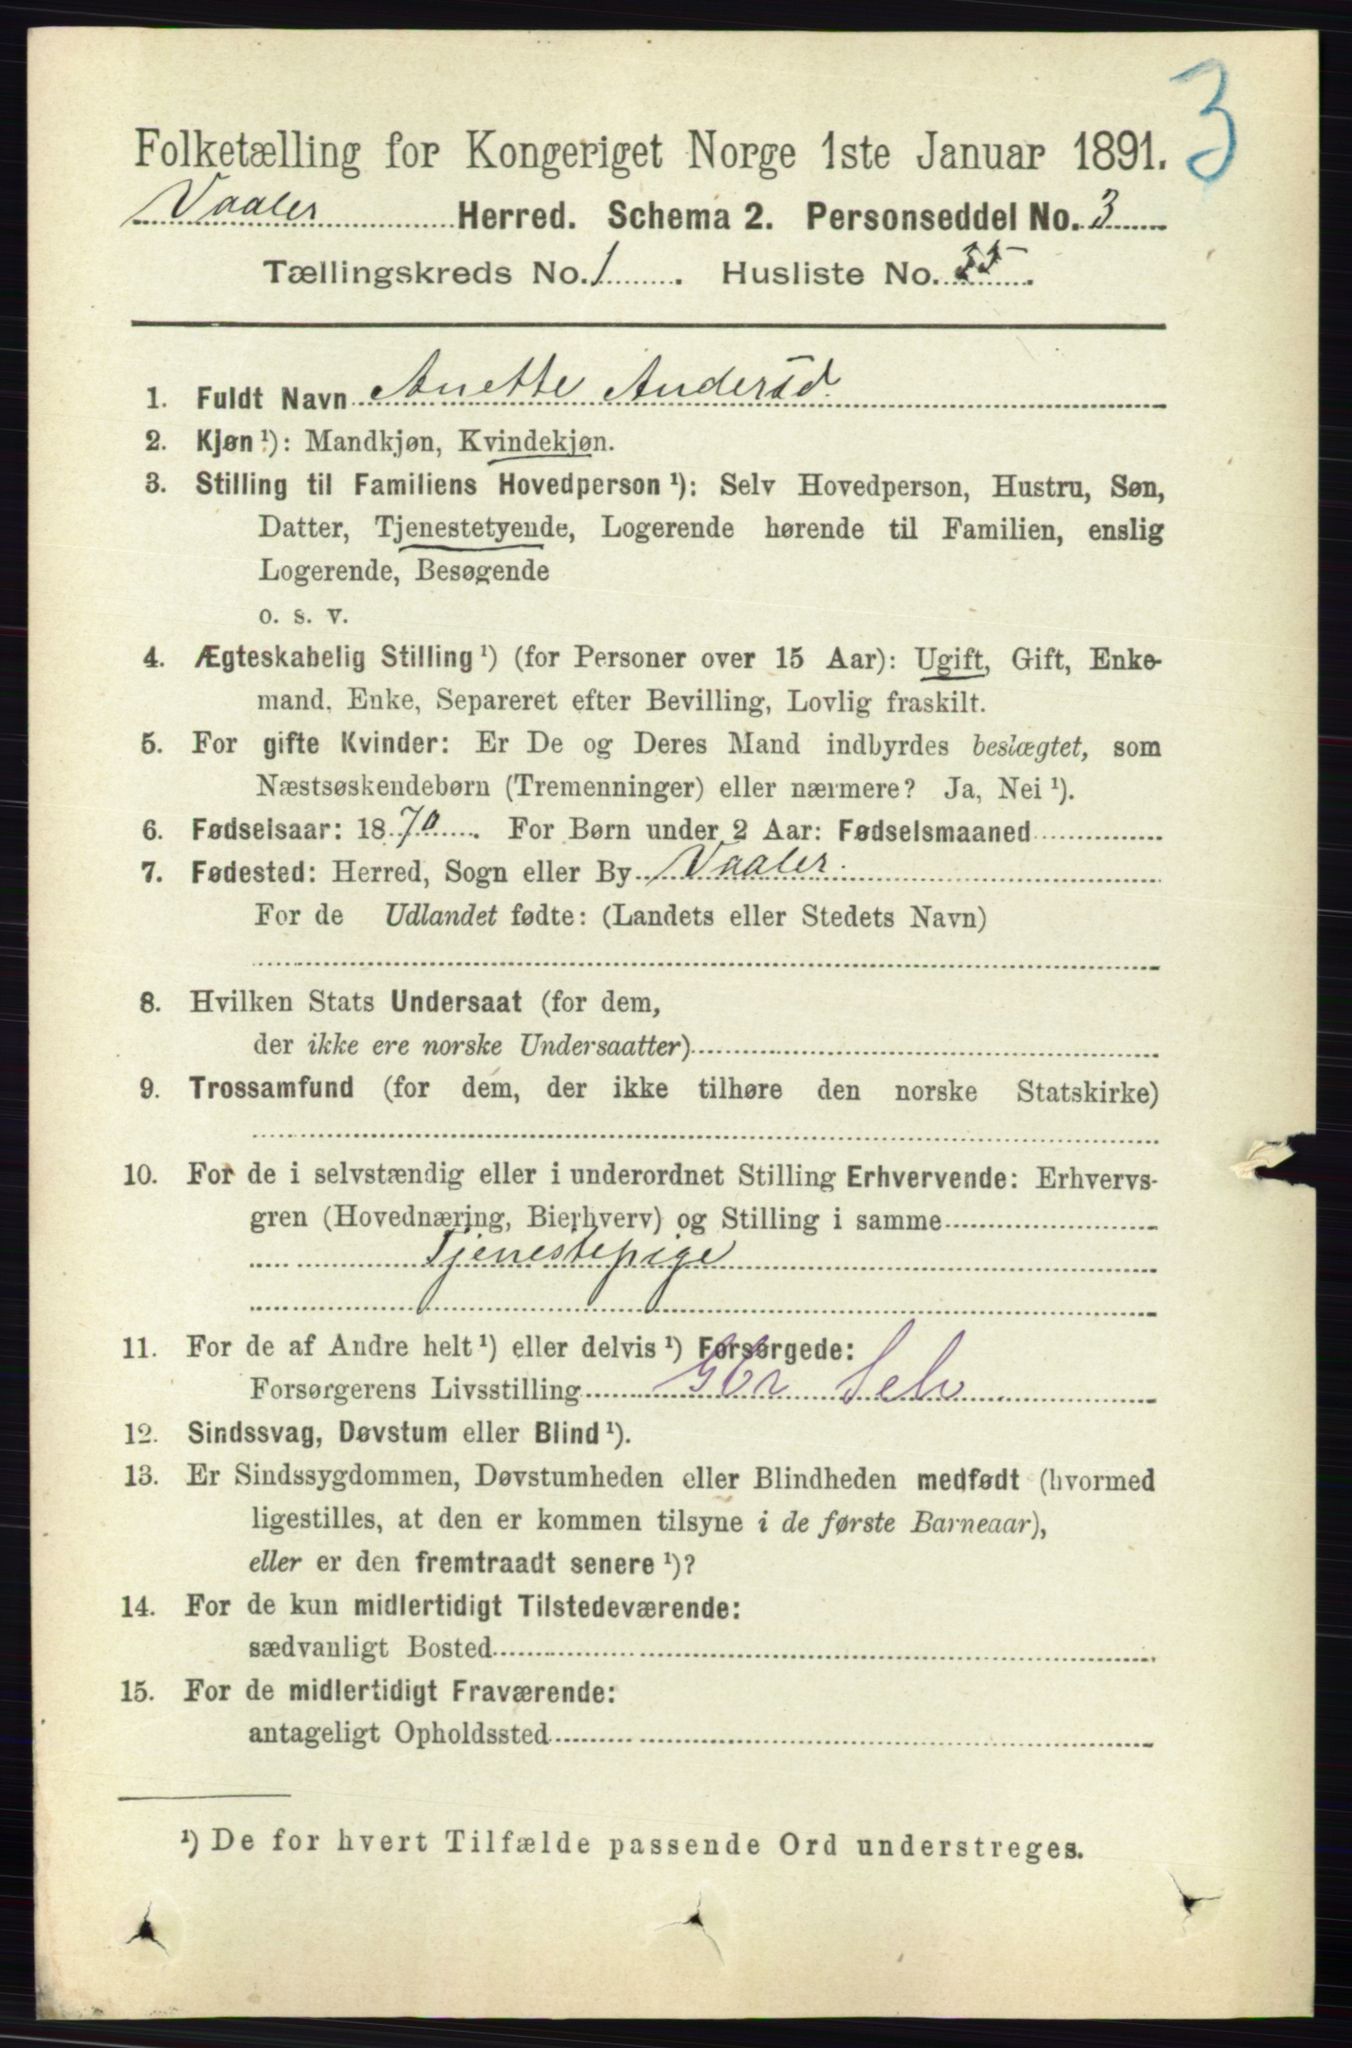 3
Folketælling for Kongeriget Norge 1ste Januar 1891.
Vaaler Herred. Schema 2. Personseddel No. 3
Tællingskreds No. 1. Husliste No. 55.
1. Fuldt Navn Anette
2. Kjøn ¹): Mandkjøn, Kvindekjøn.
3. Stilling til Familiens Hovedperson ¹): Selv Hovedperson, Hustru, Søn,
Datter, Tjenestetyende, Logerende hørende til Familien, enslig
Logerende, Besøgende
o. s. v.
4. Ægteskabelig Stilling ¹) (for Personer over 15 Aar): Ugift, Gift, Enke-
mand, Enke, Separeret efter Bevilling, Lovlig fraskilt.
5. For gifte Kvinder: Er De og Deres Mand indbyrdes beslægtet, som
Næstsøskendebørn (Tremenninger) eller nærmere? Ja, Nei ¹).
6. Fødselsaar: 1870. For Børn under 2 Aar: Fødselsmaaned
7. Fødested: Herred, Sogn eller By Vaaler.
For de Udlandet fødte: (Landets eller Stedets Navn)
8. Hvilken Stats Undersaat (for dem,
der ikke ere norske Undersaatter)
9. Trossamfund (for dem, der ikke tilhøre den norske Statskirke)
10. For de i selvstændig eller i underordnet Stilling Erhvervende: Erhvervs-
gren (Hovednæring, Bierhverv) og Stilling i samme
Tjenestepige
11. For de af Andre helt ¹) eller delvis ¹) Forsørgede:
Forsørgerens Livsstilling Selv
12. Sindssvag, Døvstum eller Blind ¹).
13. Er Sindssygdommen, Døvstumheden eller Blindheden medfødt (hvormed
ligestilles, at den er kommen tilsyne i de første Barneaar),
eller er den fremtraadt senere ¹)?
14. For de kun midlertidigt Tilstedeværende:
sædvanligt Bosted
15. For de midlertidigt Fraværende:
antageligt Opholdssted
¹) De for hvert Tilfælde passende Ord understreges.